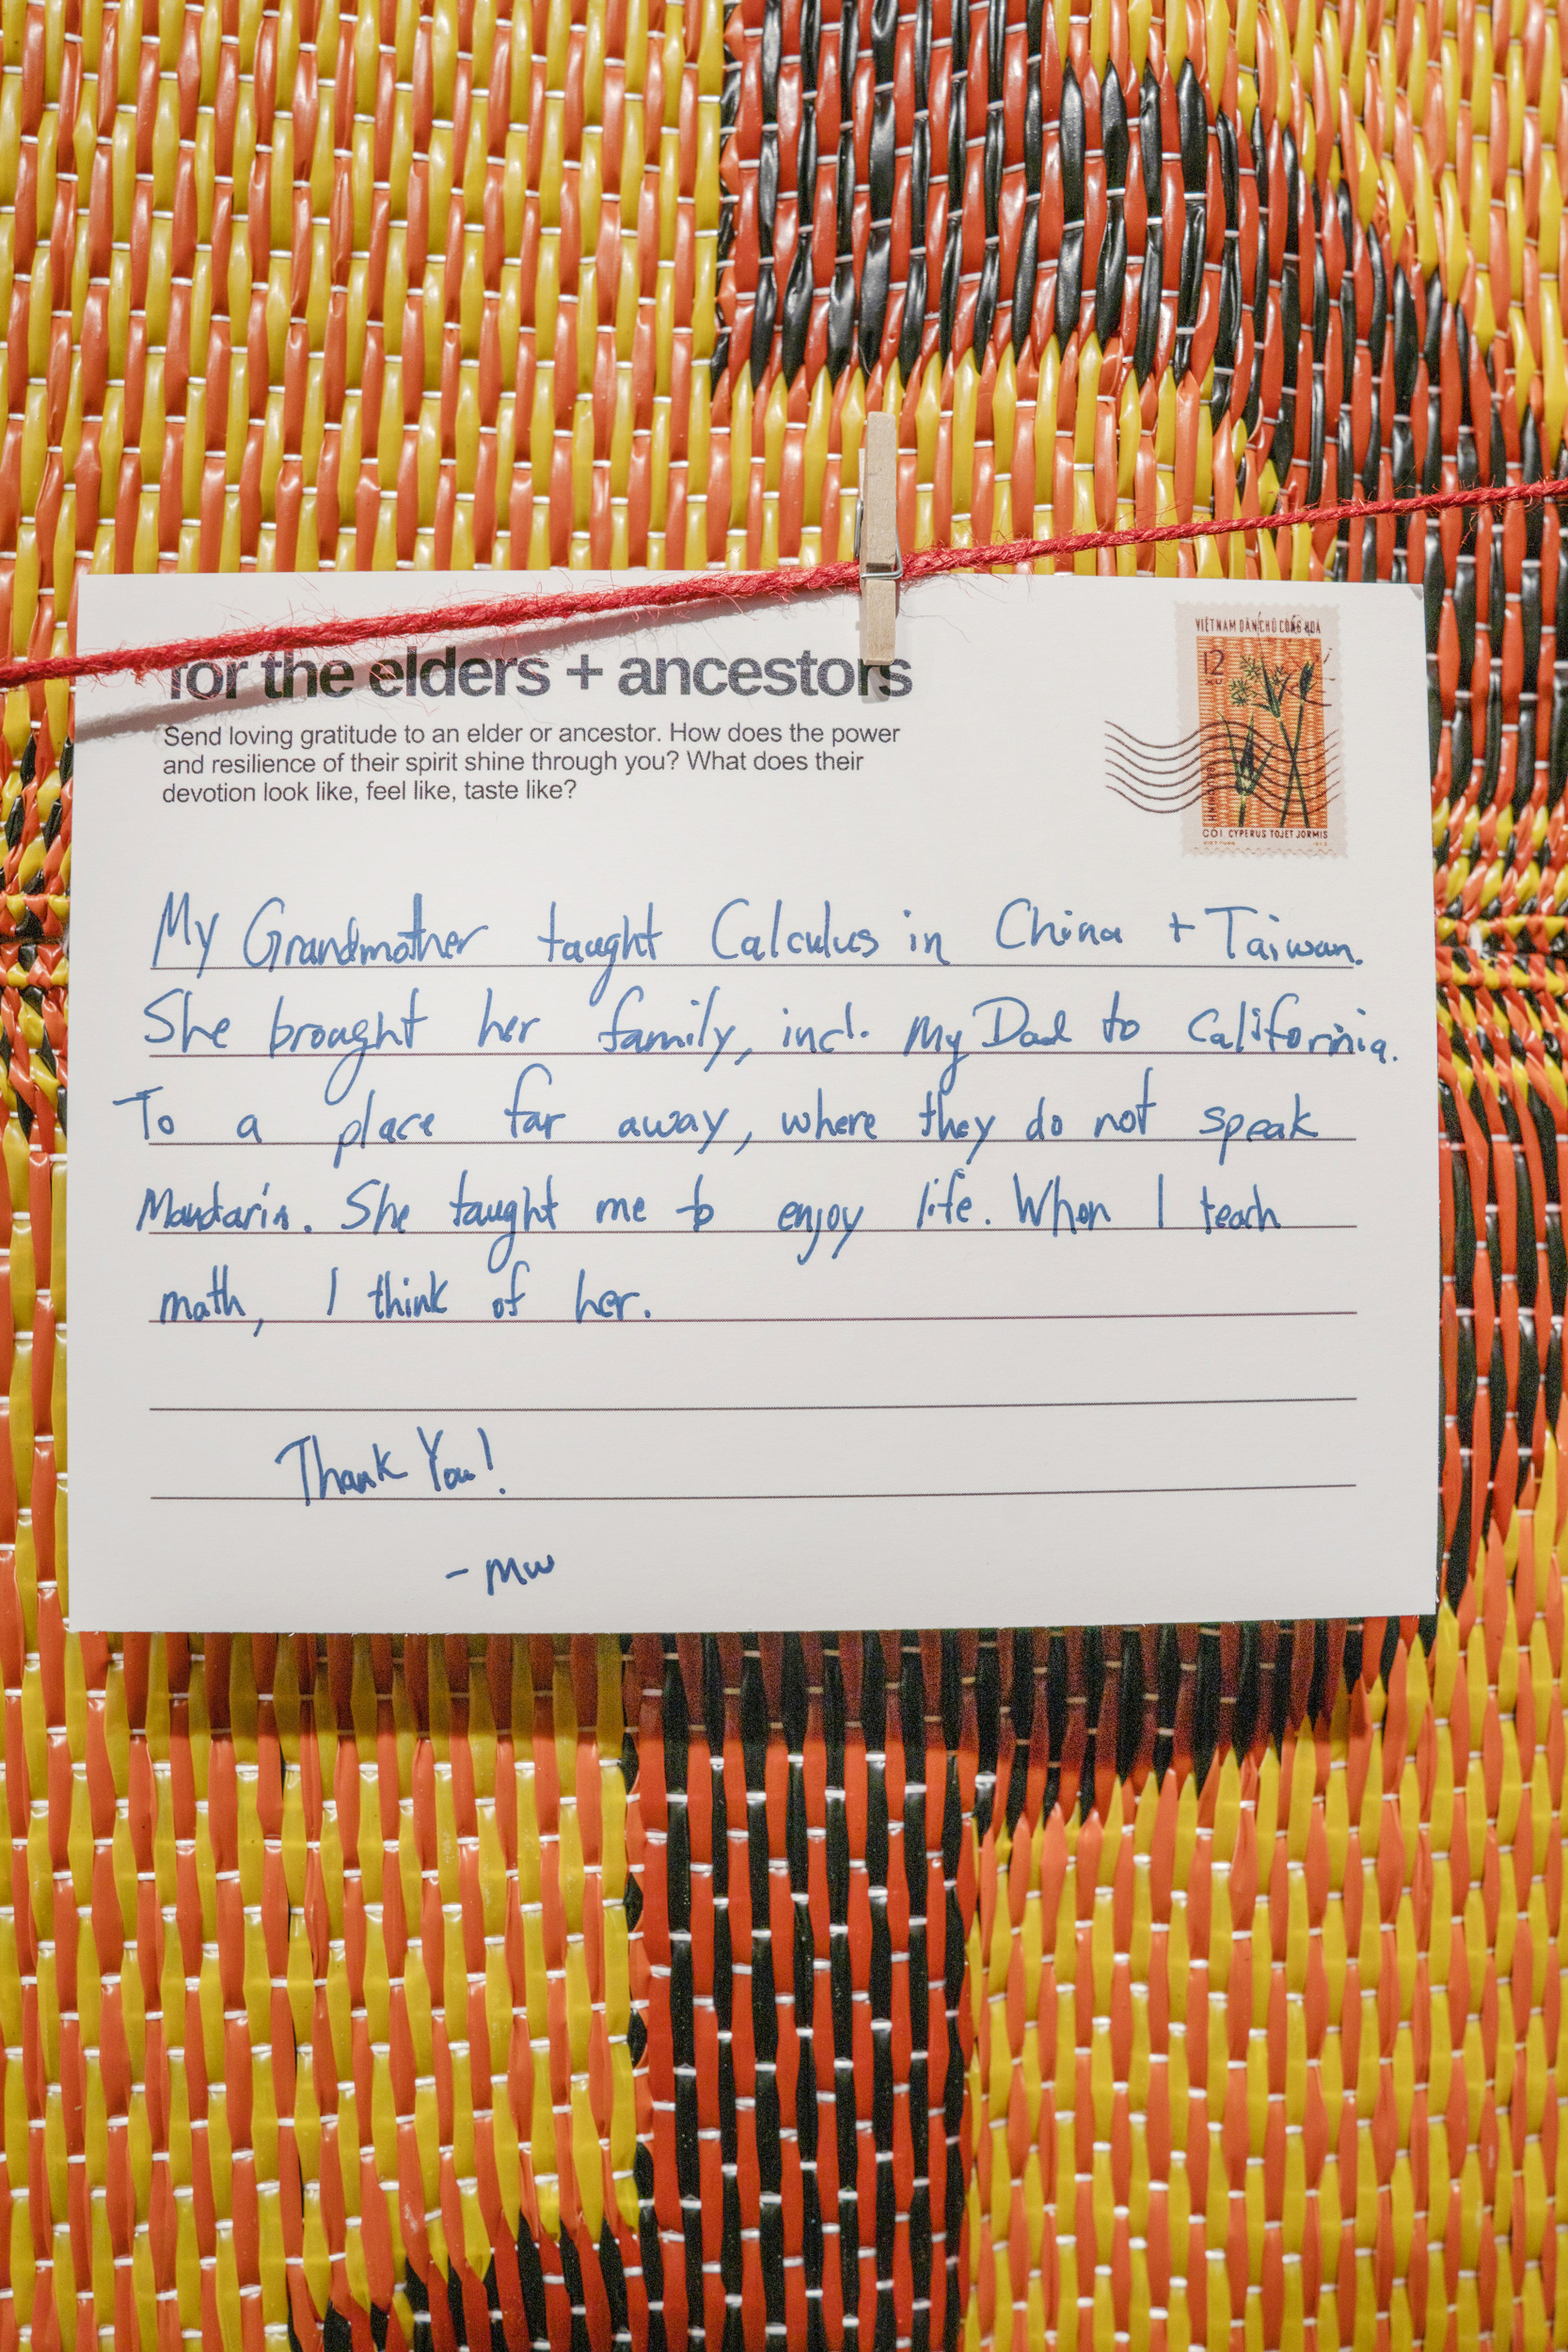 for the elders + ancestors
Send loving gratitude to an elder or ancestor. How does the power
and resilience of their spirit shine through you? What does their
devotion look like, feel like, taste like?
VIỆTNAM DÂN CHỦ CỘNG HÒA
12
XU
CÓI CYPERUS TOJET JORMIS
My Grandmother taught Calculus in China + Taiwan.
She brought her family, incl. My Dad to California.
To a place far away, where they do not speak
Mandarin. She taught me to enjoy life. When I teach
math, I think of her.
Thank You!
- MW